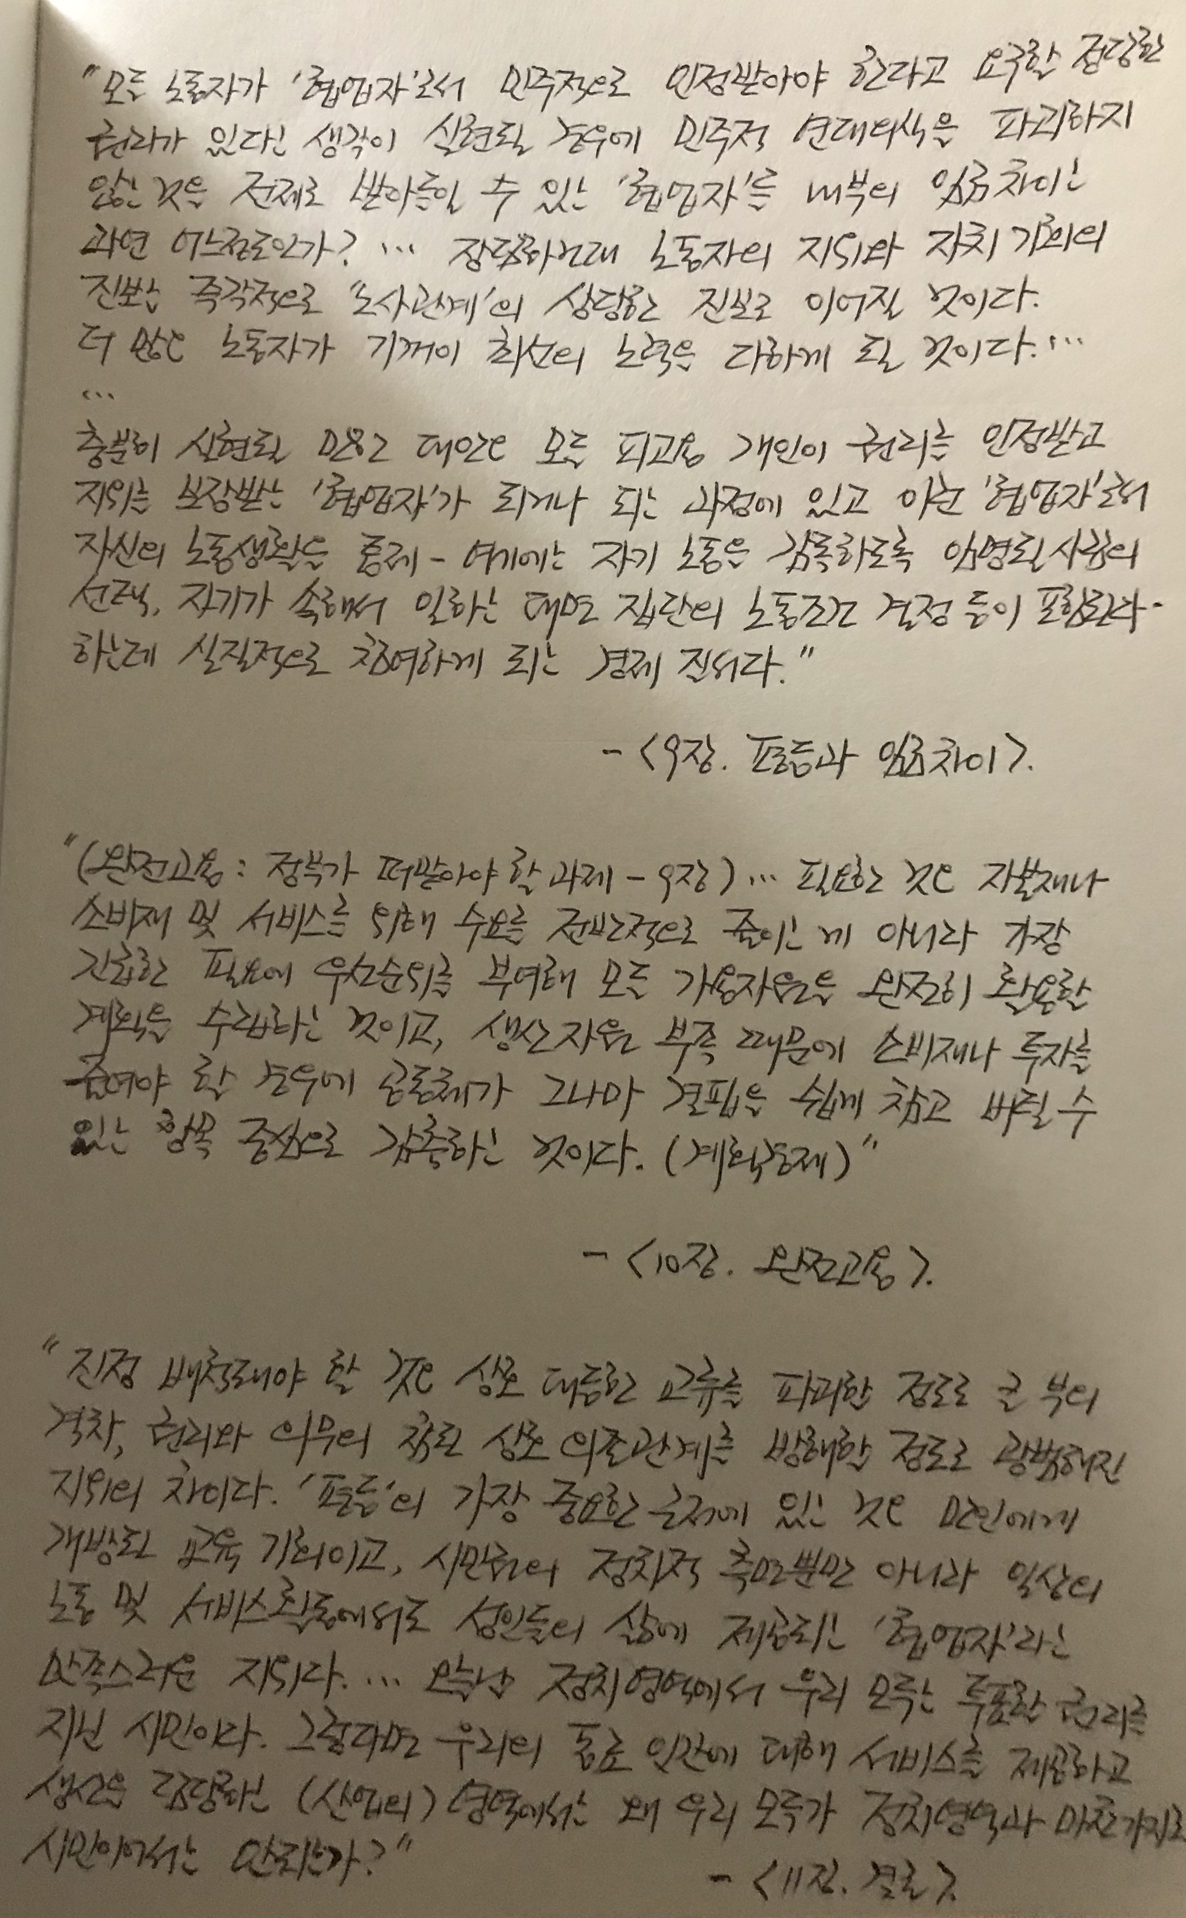 "모든 노동자가 '협업자'로서 민주적으로 인정받아야 한다고 요구할 정당한
권리가 있다는 생각이 실현될 경우에 민주적 연대의식을 파괴하지
않는 것을 전제로 받아들일 수 있는 '협업자'들 내부의 임금차이는
과연 어느정도인가? … 장담하건대 노동자의 지위와 자치 기회의
진보는 즉각적으로 '노사관계'의 상당한 진보로 이어질 것이다.
더 많은 노동자가 기꺼이 최선의 노력을 다하게 될 것이다. …
…
충분히 실현될 만한 대안은 모든 피고용 개인이 권리를 인정받고
지위를 보장받는 '협업자'가 되거나 되는 과정에 있고 이런 '협업자'로서
자신의 노동생활을 통제 - 여기에는 자기 노동을 감독하도록 임명될 사람의
선택, 자기가 속해서 일하는 대면 집단의 노동조건 결정 등이 포함된다 -
하는데 실질적으로 참여하게 되는 경제 질서다."
- <9장. 평등과 임금차이>.
"(완전고용 : 정부가 떠맡아야 할 과제 - 9장) … 필요한 것은 자본재나
소비재 및 서비스를 위해 수요를 전반적으로 줄이는 게 아니라 가장
긴급한 필요에 우선순위를 부여해 모든 가용자원을 완전히 활용할
계획을 수립하는 것이고, 생산자원 부족 때문에 소비재나 투자를
줄여야 할 경우에 공동체가 그나마 결핍을 쉽게 참고 버틸 수
있는 항목 중심으로 감축하는 것이다. (계획통제)"
- <10장. 완전고용>.
"진정 배척해야 할 것은 상호 대등한 교류를 파괴할 정도로 큰 부의
격차, 권리와 의무의 참된 상호 의존관계를 방해할 정도로 광범해진
지위의 차이다. '평등'의 가장 중요한 근저에 있는 것은 만인에게
개방된 교육 기회이고, 시민권의 정치적 측면뿐만 아니라 일상의
노동 및 서비스활동에서도 성인들의 삶에 제공되는 '협업자'라는
만족스러운 지위다. … 오늘날 정치영역에서 우리 모두는 투표할 권리를
지닌 시민이다. 그렇다면 우리의 동료 인간에 대해 서비스를 제공하고
생산을 담당하는 (산업의) 영역에서는 왜 우리 모두가 정치영역과 마찬가지로
시민이어서는 안되는가?"
- <11장. 결론>.